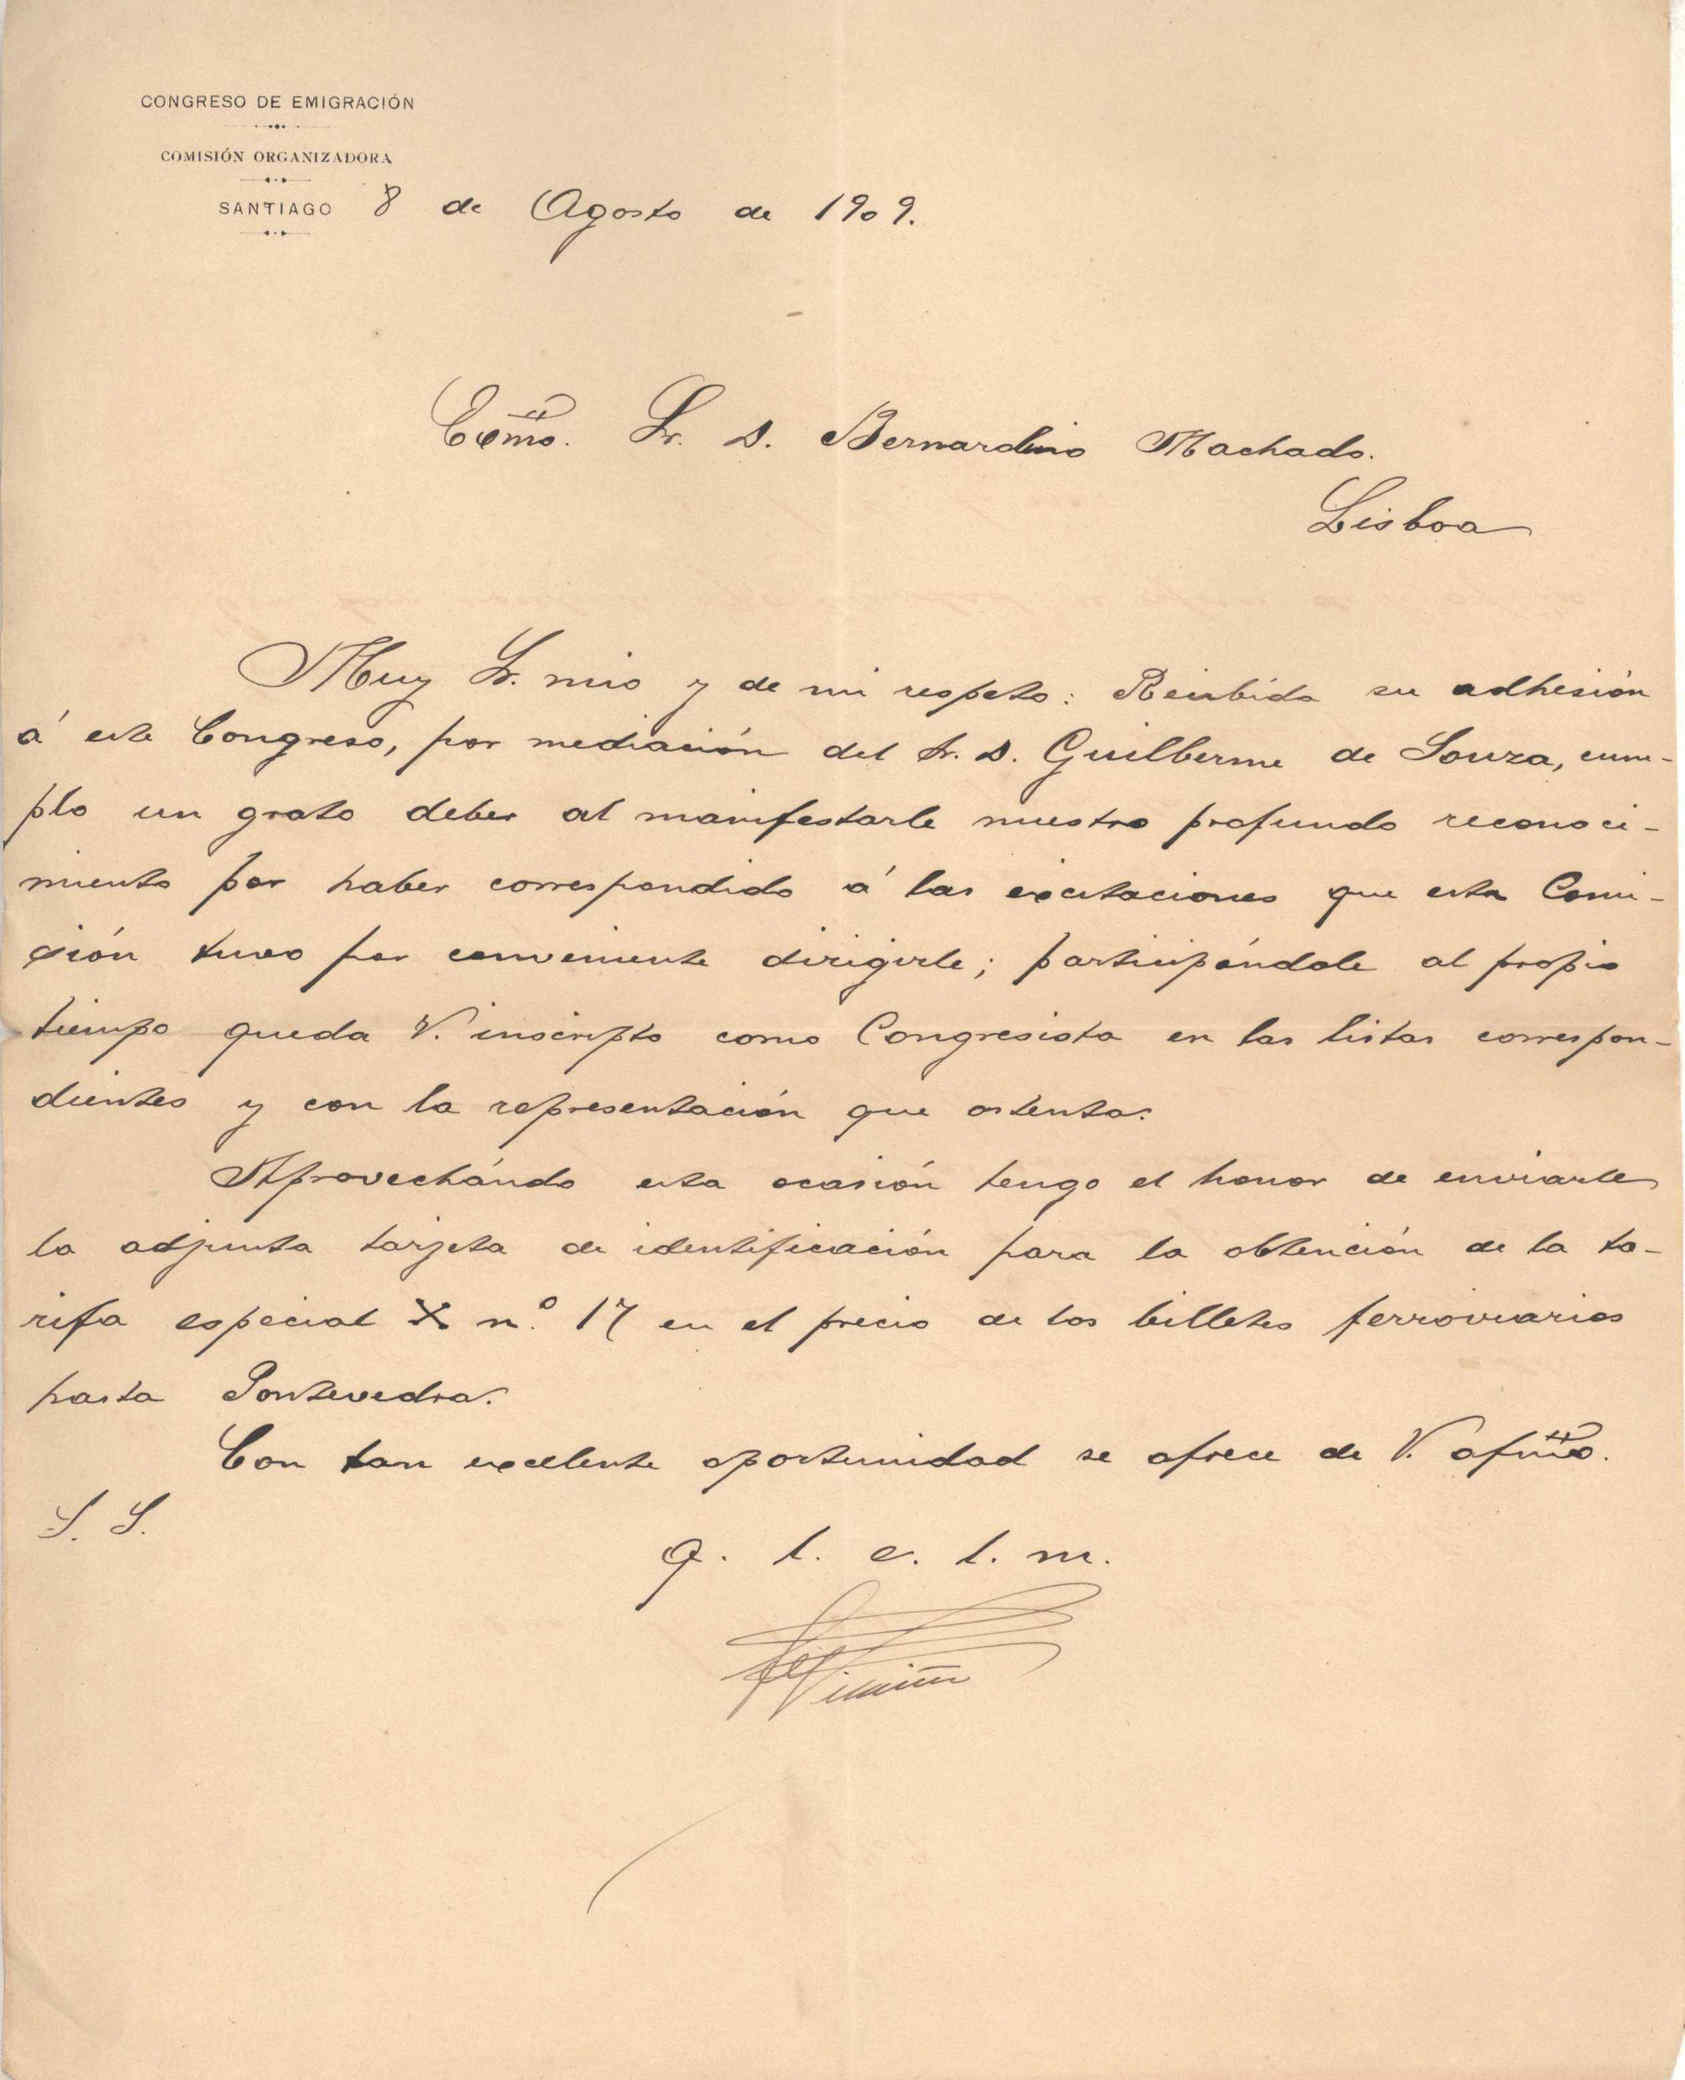 CONGRESO DE EMIGRACIÓN
COMISIÓN ORGANIZADORA
SANTIAGO 8 de Agosto de 1909.
Excmo. Sr. D. Bernardino Machado.
Lisboa
Muy Sr. mio y de mi respeto: Recibida su adhesión
á este Congreso, por mediación del Sr. D. Guilherme de Souza, cum-
plo un grato deber al manifestarle nuestro profundo reconoci-
miento por haber correspondido á las excitaciones que esta Comi-
sión tuvo por conveniente dirigirle; participándole al propio
tiempo queda V. inscripto como Congresista en las listas correspon-
dientes y con la representación que ostenta.
Aprovechándo esta ocasión tengo el honor de enviarle
la adjunta tarjeta de identificación para la obtención de la ta-
rifa especial X n.º 17 en el precio de los billetes ferroviarios
hasta Pontevedra.
Con tan excelente oportunidad se ofrece de V. afmo.
S. S.
q. l. e. l. m.